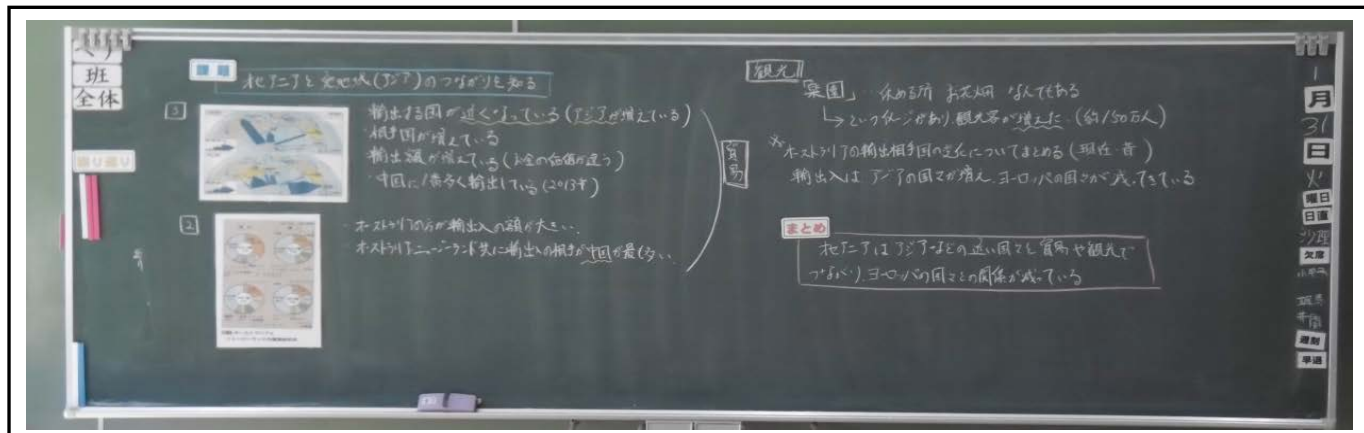 班
全体
振り返り
課題
オセアニアと他地域(アジア)のつながりを知る
3
輸出する国が近くなっている(アジアが増えている)
・相手国が増えている
輸出額が増えている(お金の価値が違う)
・中国に1番多く輸出している(2013年)
2
・オーストラリアの方が輸出入の額が大きい。
・オーストラリア、ニュージーランド共に輸出入の相手が中国が最も多い。
貿易
観光
楽園」… 休める所 お花畑 なんでもある
↳というイメージがあり観光客が増えた。(約150万人)
※オーストラリアの輸出相手国の変化についてまとめる(現在・昔)
輸出入は アジアの国々が増え、ヨーロッパの国々が減ってきている
まとめ
オセアニアはアジアなどの近い国々と貿易や観光で
つながり、ヨーロッパの国々との関係が減っている
1
月
31
日
火
曜日
日直
欠席
遅刻
早退